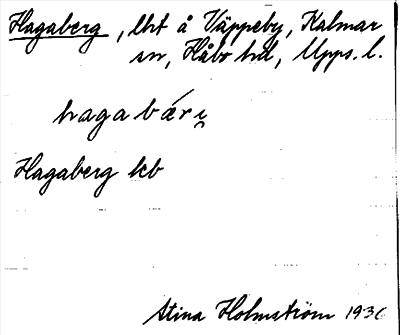 Hagaberg, lht å Väppeby, Kalmar
sn, Håbo hd, Upps. l.
hagabǽri̯
Hagaberg kb
Stina Holmström 1936